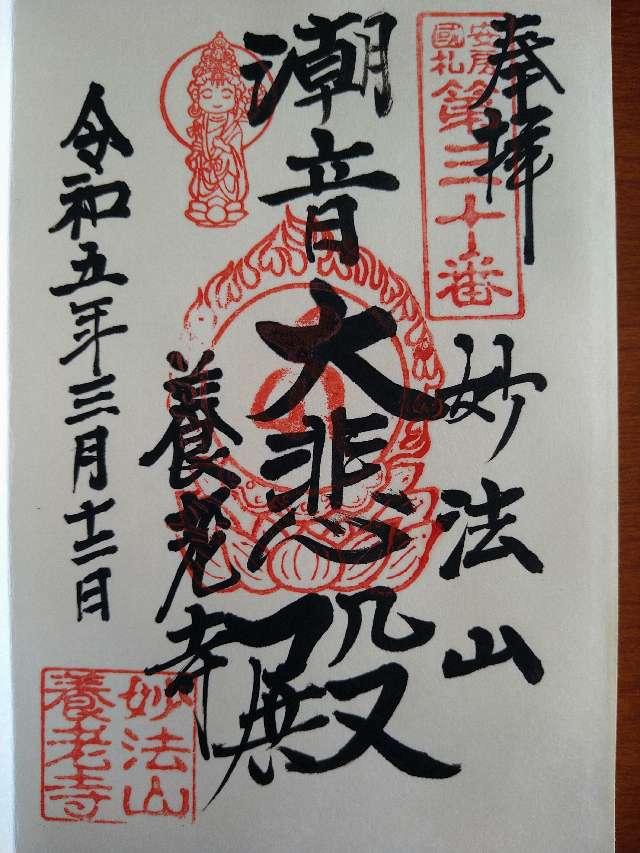 奉拝
安房
國札
第三十番
妙法山
潮音大悲殿
養老寺
令和五年三月十二日
妙法山
養老寺